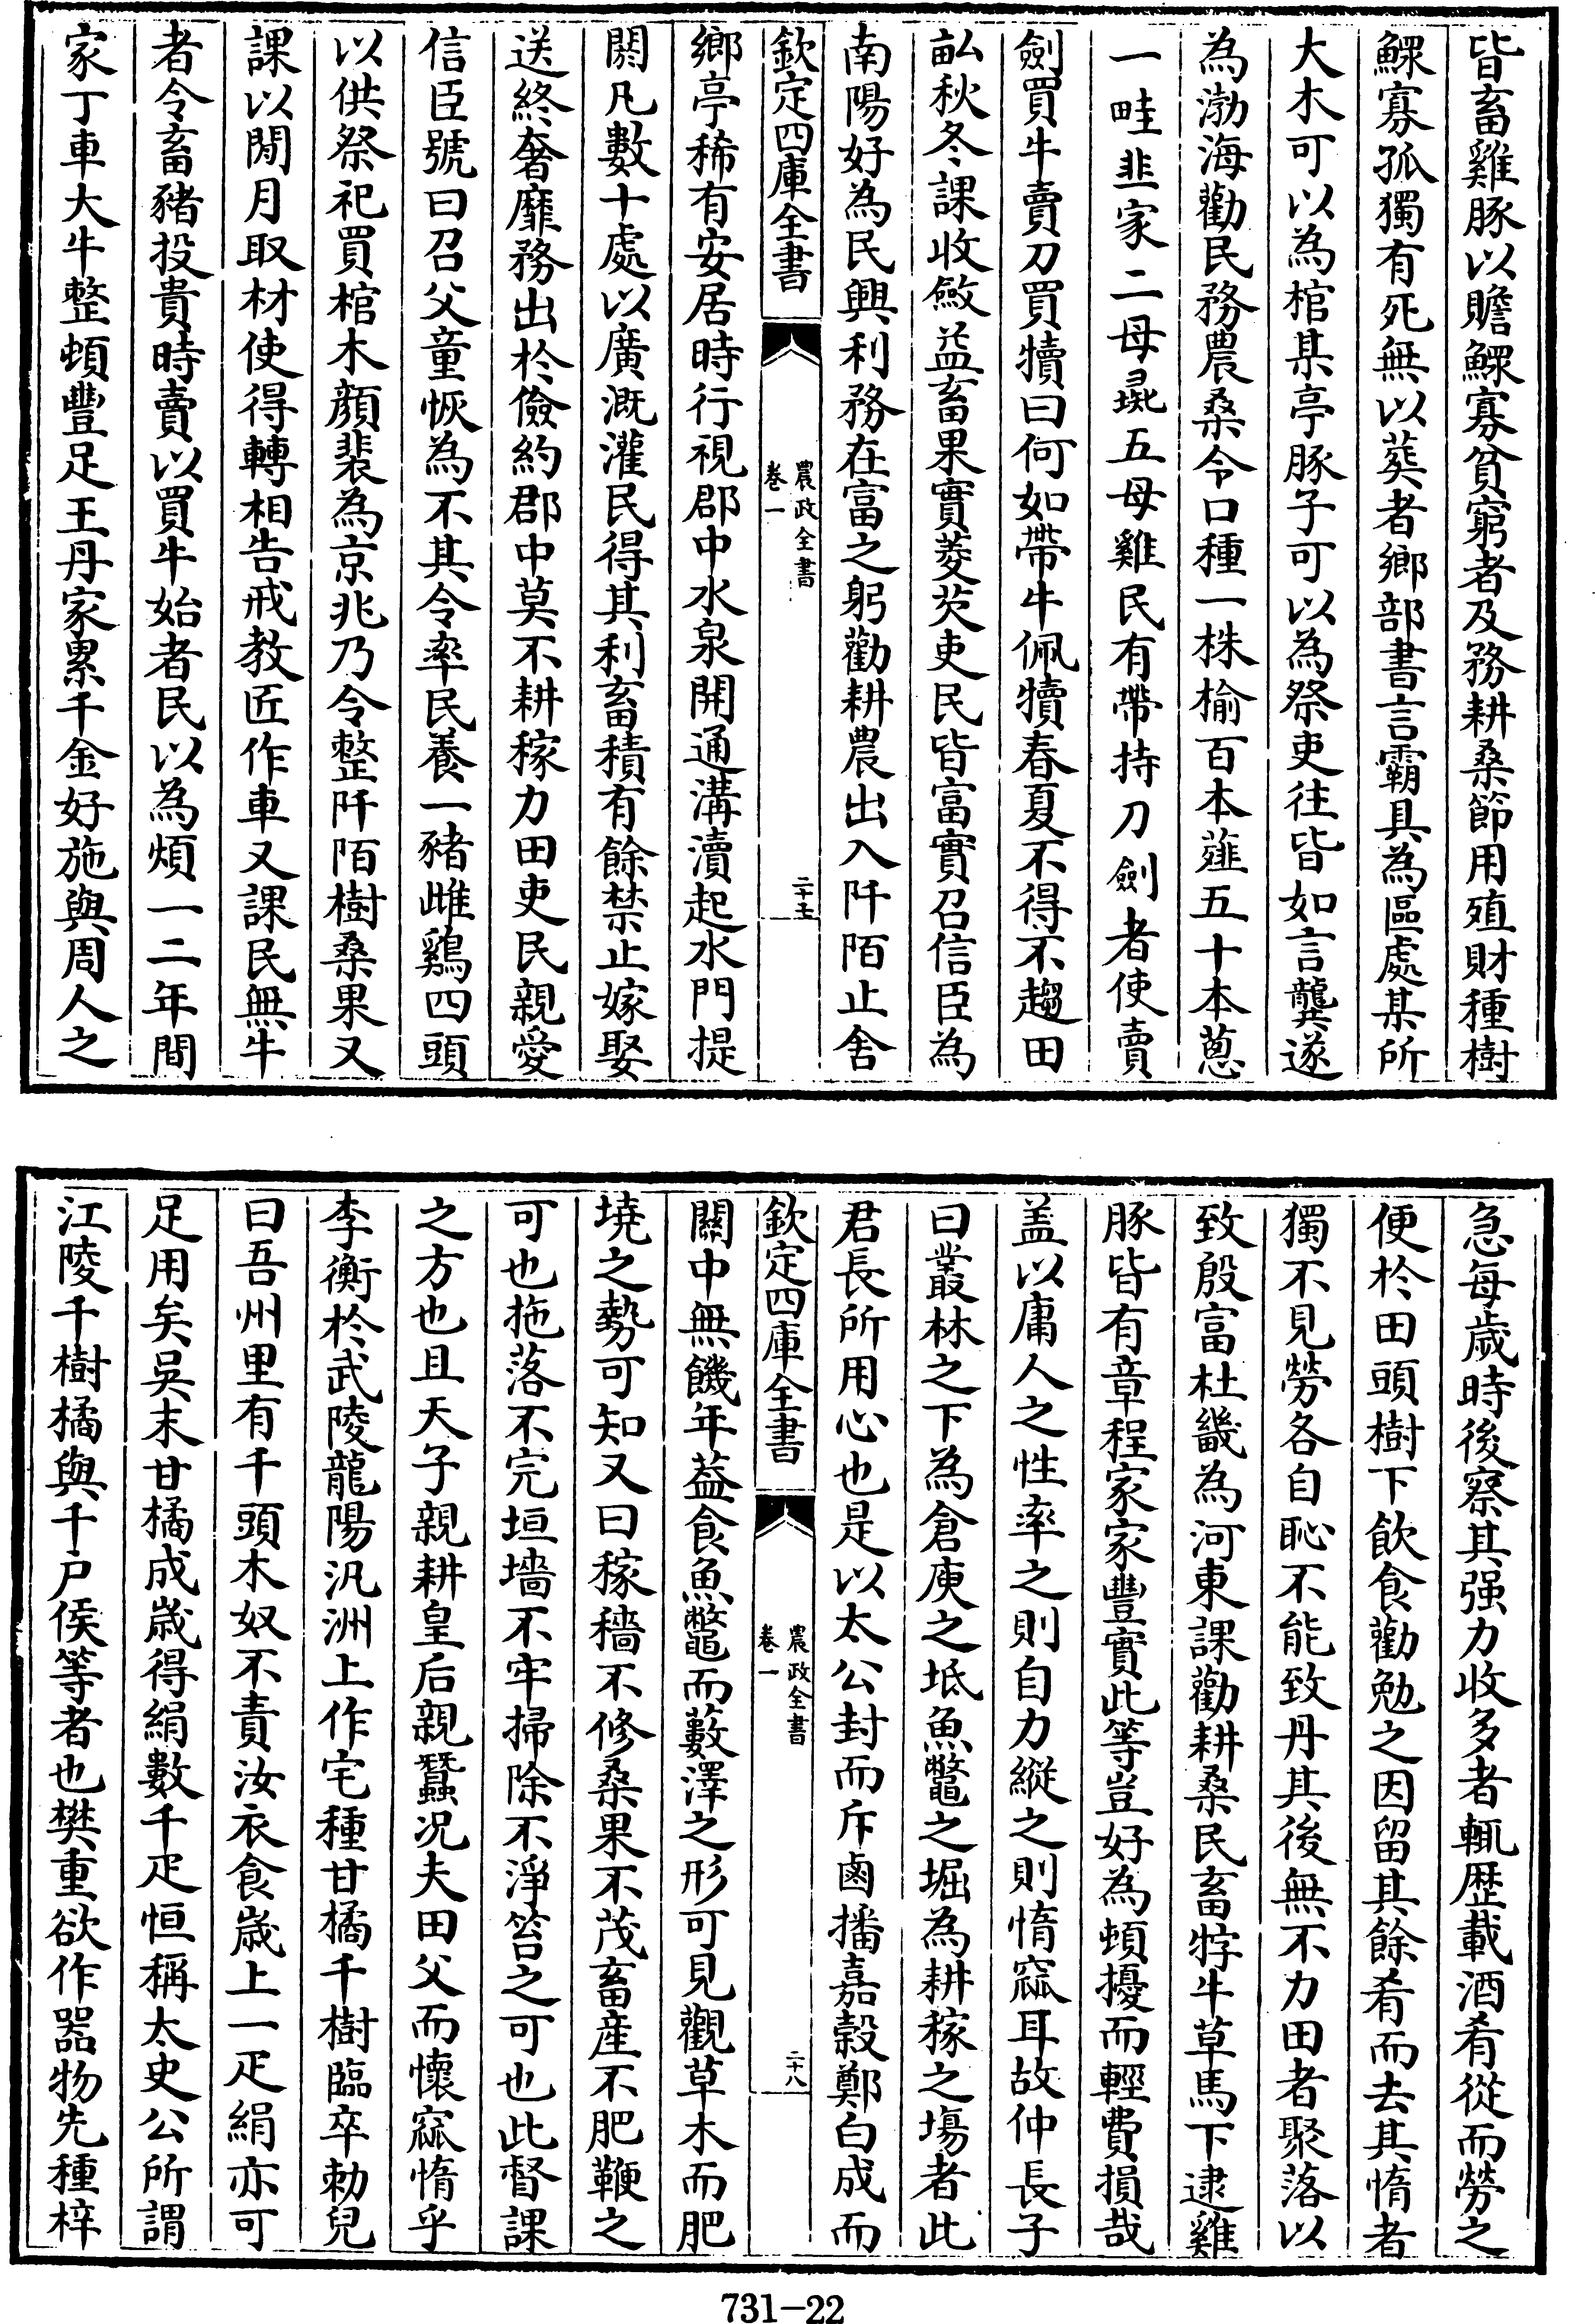 皆畜雞豚以贍鰥寡貧窮者及務耕桑節用殖財種樹
鰥寡孤獨有死無以𦵏者鄉部書言霸具為區處某所
大木可以為棺某亭豚子可以為祭吏往皆如言龔遂
為渤海勸民務農桑令口種一株榆百本薤五十本蔥
一畦韭家二母彘五母雞民有帶持刀劍者使賣
劍買牛賣刀買犢曰何如帶牛佩犢春夏不得不趨田
畆秋冬課收斂益畜果實菱芡吏民皆富實召信臣為
南陽好為民興利務在富之躬勸耕農出入阡陌止舍
欽定四庫全書
農政全書
卷一
二十七
鄉亭稀有安居時行視郡中水泉開通溝瀆起水門提
閼凡數十處以廣溉灌民得其利畜積有餘禁止嫁娶
送終奢靡務出於儉約郡中莫不耕稼力田吏民親愛
信臣號曰召父童恢為不其令率民養一豬雌鷄四頭
以供祭祀買棺木顔裴為京兆乃令整阡陌樹桑果又
課以閒月取材使得轉相告戒教匠作車又課民無牛
者令畜豬投貴時賣以買牛始者民以為煩一二年間
家丁車大牛整頓豐足王丹家累千金好施與周人之
急每歲時後察其强力收多者輒歴載酒肴從而勞之
便於田頭樹下飲食勸勉之因留其餘肴而去其惰者
獨不見勞各自恥不能致丹其後無不力田者聚落以
致殷富杜畿為河東課勸耕桑民畜牸牛草馬下逮雞
豚皆有章程家家豐實此等豈好為頓擾而輕費損哉
盖以庸人之性率之則自力縱之則惰窳耳故仲長子
曰叢林之下為倉庾之坻魚鼈之堀為耕稼之塲者此
君長所用心也是以太公封而斥鹵播嘉穀鄭白成而
欽定四庫全書
農政全書
卷一
二十八
關中無饑年葢食魚鼈而藪澤之形可見觀草木而肥
墝之勢可知又曰稼穡不修桑果不茂畜產不肥鞭之
可也拖落不完垣墻不牢掃除不淨笞之可也此督課
之方也且天子親耕皇后親蠶况夫田父而懷窳惰乎
李衡於武陵龍陽汎洲上作宅種甘橘千樹臨卒勅兒
曰吾州里有千頭木奴不責汝衣食歲上一疋絹亦可
足用矣吳末甘橘成歲得絹數千疋恒稱太史公所謂
江陵千樹橘與千户侯等者也樊重欲作器物先種梓
731-22